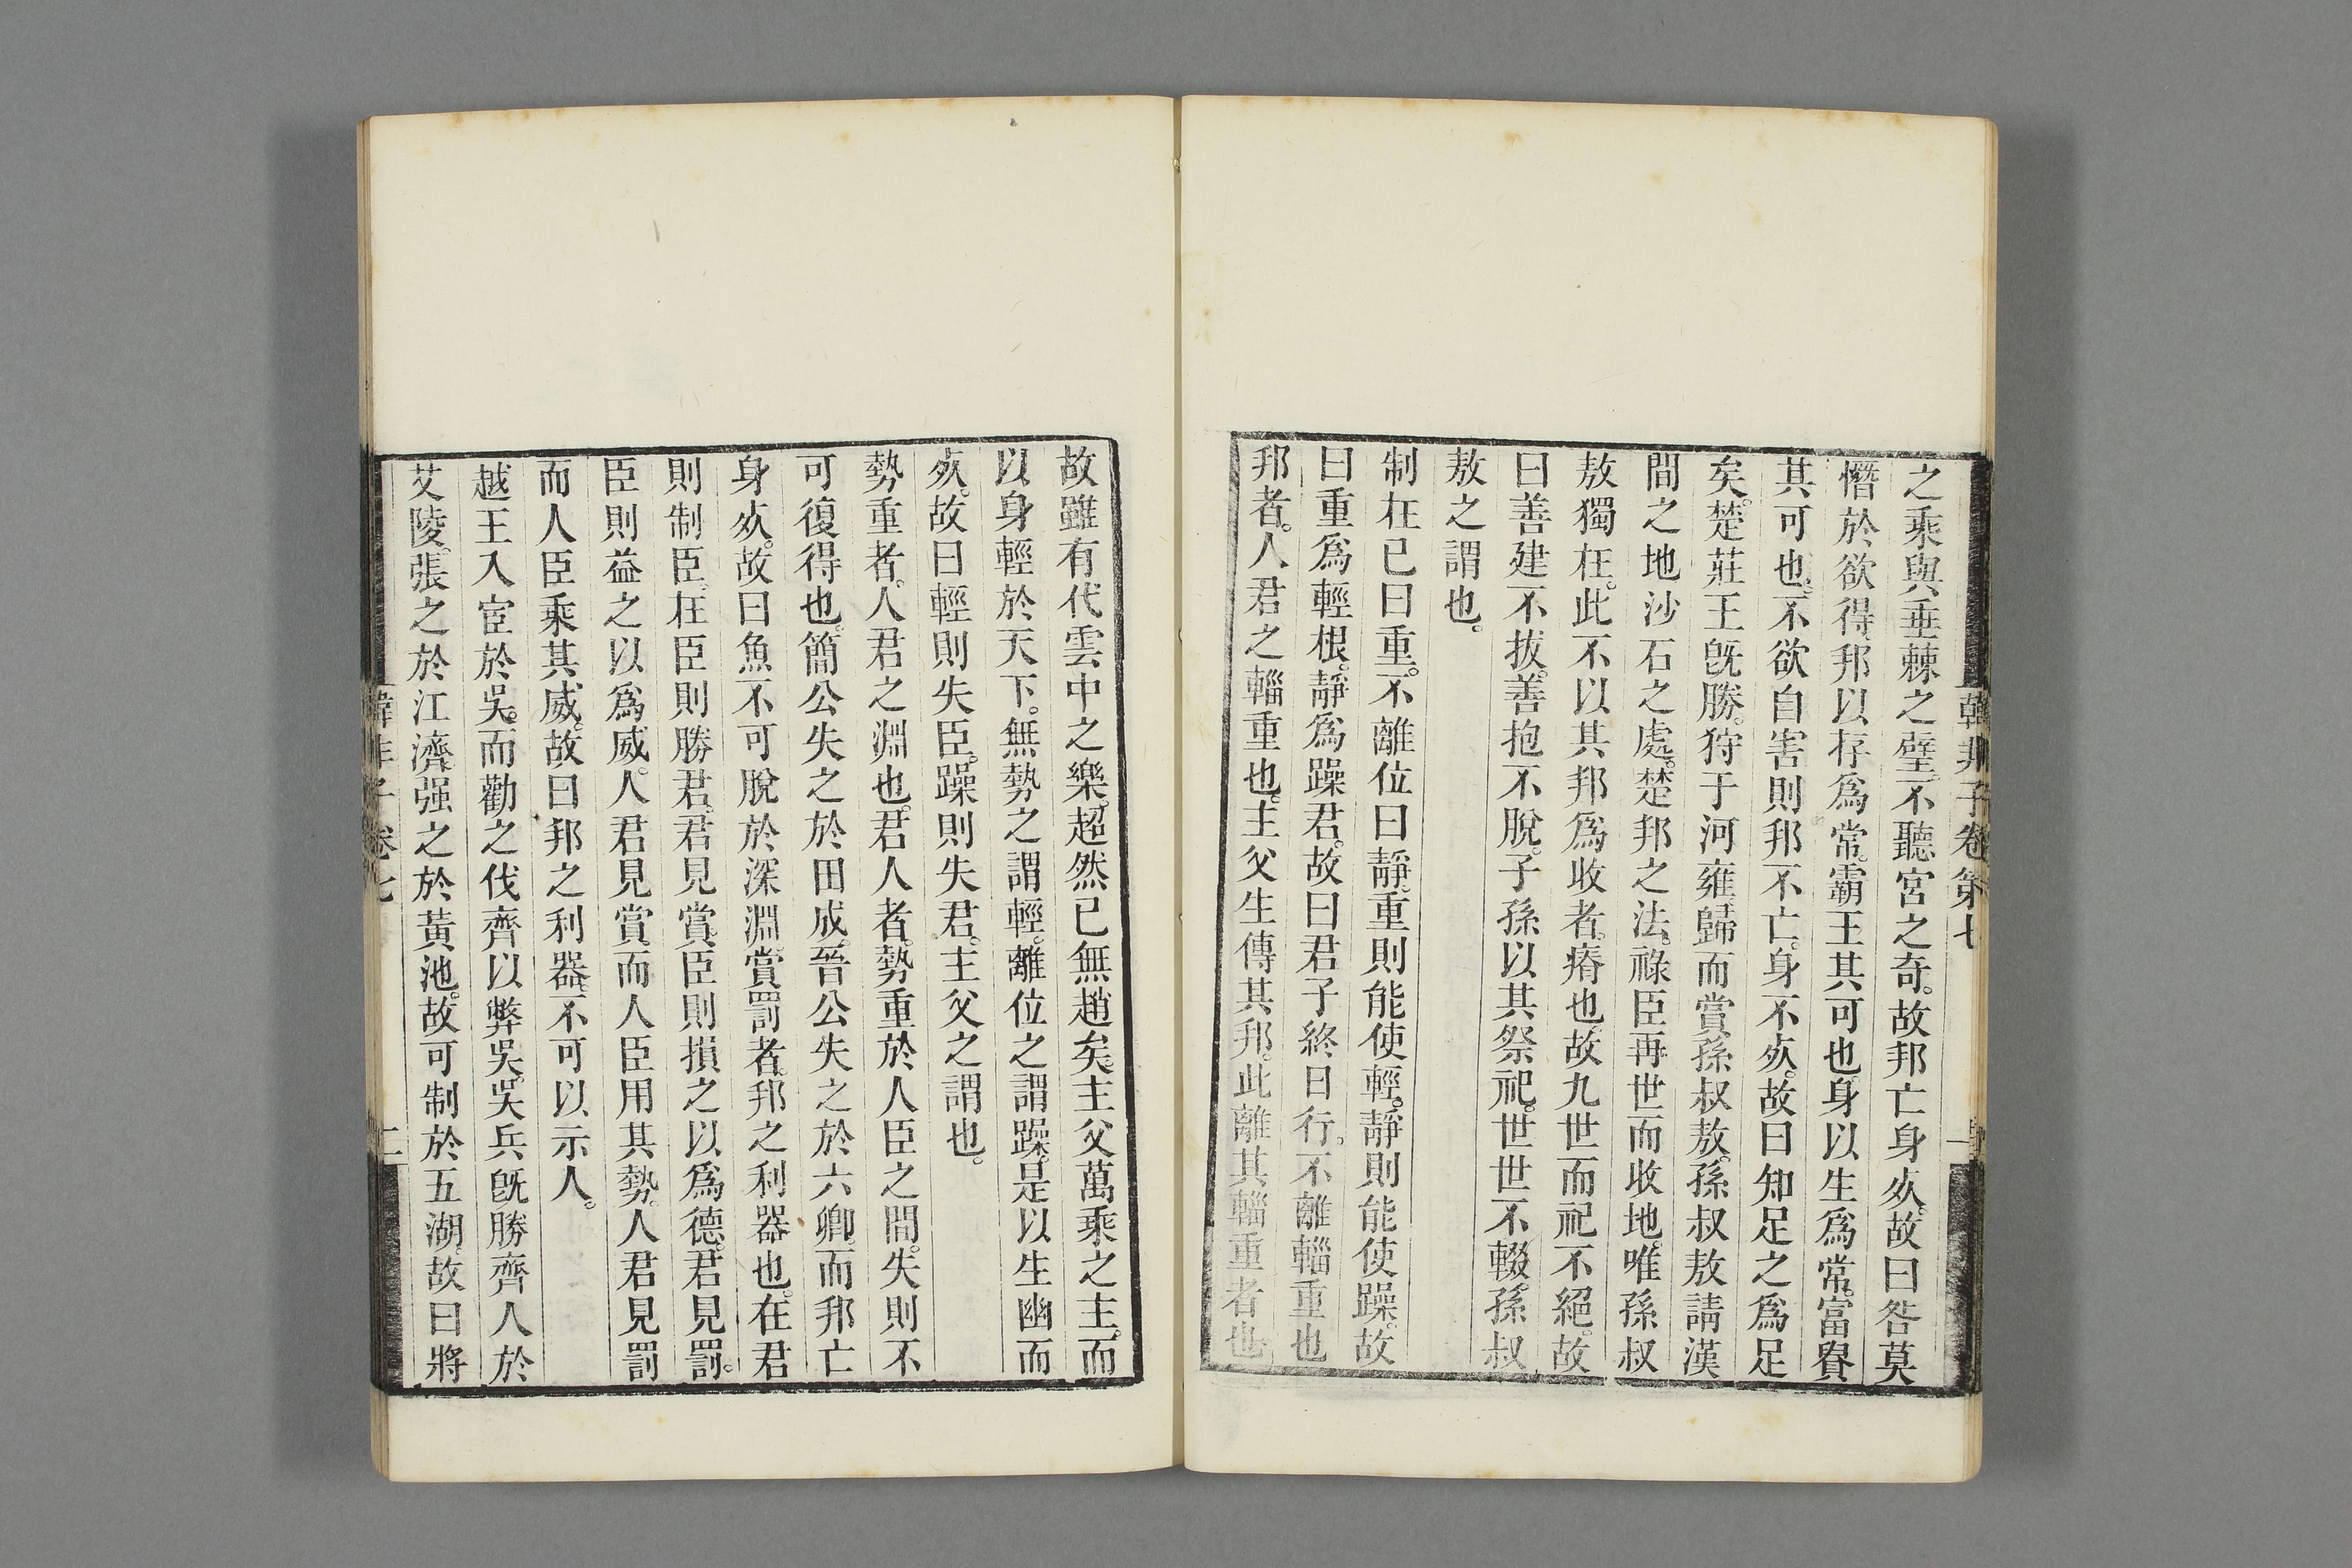 韓非子卷第七
之乘與垂棘之璧。不聽宮之奇。故邦亡身死。故曰咎莫
憯於欲得。邦以存爲常。霸王其可也。身以生爲常。富貴
其可也。不欲自害則邦不亡。身不死。故曰知足之爲足
矣。楚莊王旣勝。狩于河雍。歸而賞孫叔敖。孫叔敖請漢
間之地沙石之處。楚邦之法。祿臣再世而收地。唯孫叔
敖獨在。此不以其邦爲收者。瘠也。故九世而祀不絕。故
曰善建不拔。善抱不脫。子孫以其祭祀。世世不輟。孫叔
敖之謂也。
制在已曰重。不離位曰靜。重則能使輕。靜則能使躁。故
曰重爲輕根。靜爲躁君。故曰君子終日行。不離輜重也
邦者。人君之輜重也。主父生傳其邦。此離其輜重者也
故雖有代雲中之樂。超然已無趙矣。主父萬乘之主。而
以身輕於天下。無勢之謂輕。離位之謂躁。是以生幽而
死。故曰輕則失臣。躁則失君。主父之謂也。
勢重者。人君之淵也。君人者。勢重於人臣之間。失則不
可復得也。簡公失之於田成。晉公失之於六卿。而邦亡
身死。故曰魚不可脫於深淵。賞罰者。邦之利器也。在君
則制臣。在臣則勝君。君見賞。臣則損之以爲德。君見罰。
臣則益之以爲威。人君見賞。而人臣用其勢。人君見罰
而人臣乘其威。故曰邦之利器。不可以示人。
越王入宦於吳。而勸之伐齊以弊吳。吳兵旣勝齊人於
艾陵。張之於江濟。强之於黃池。故可制於五湖。故曰將
韓非子卷七
二